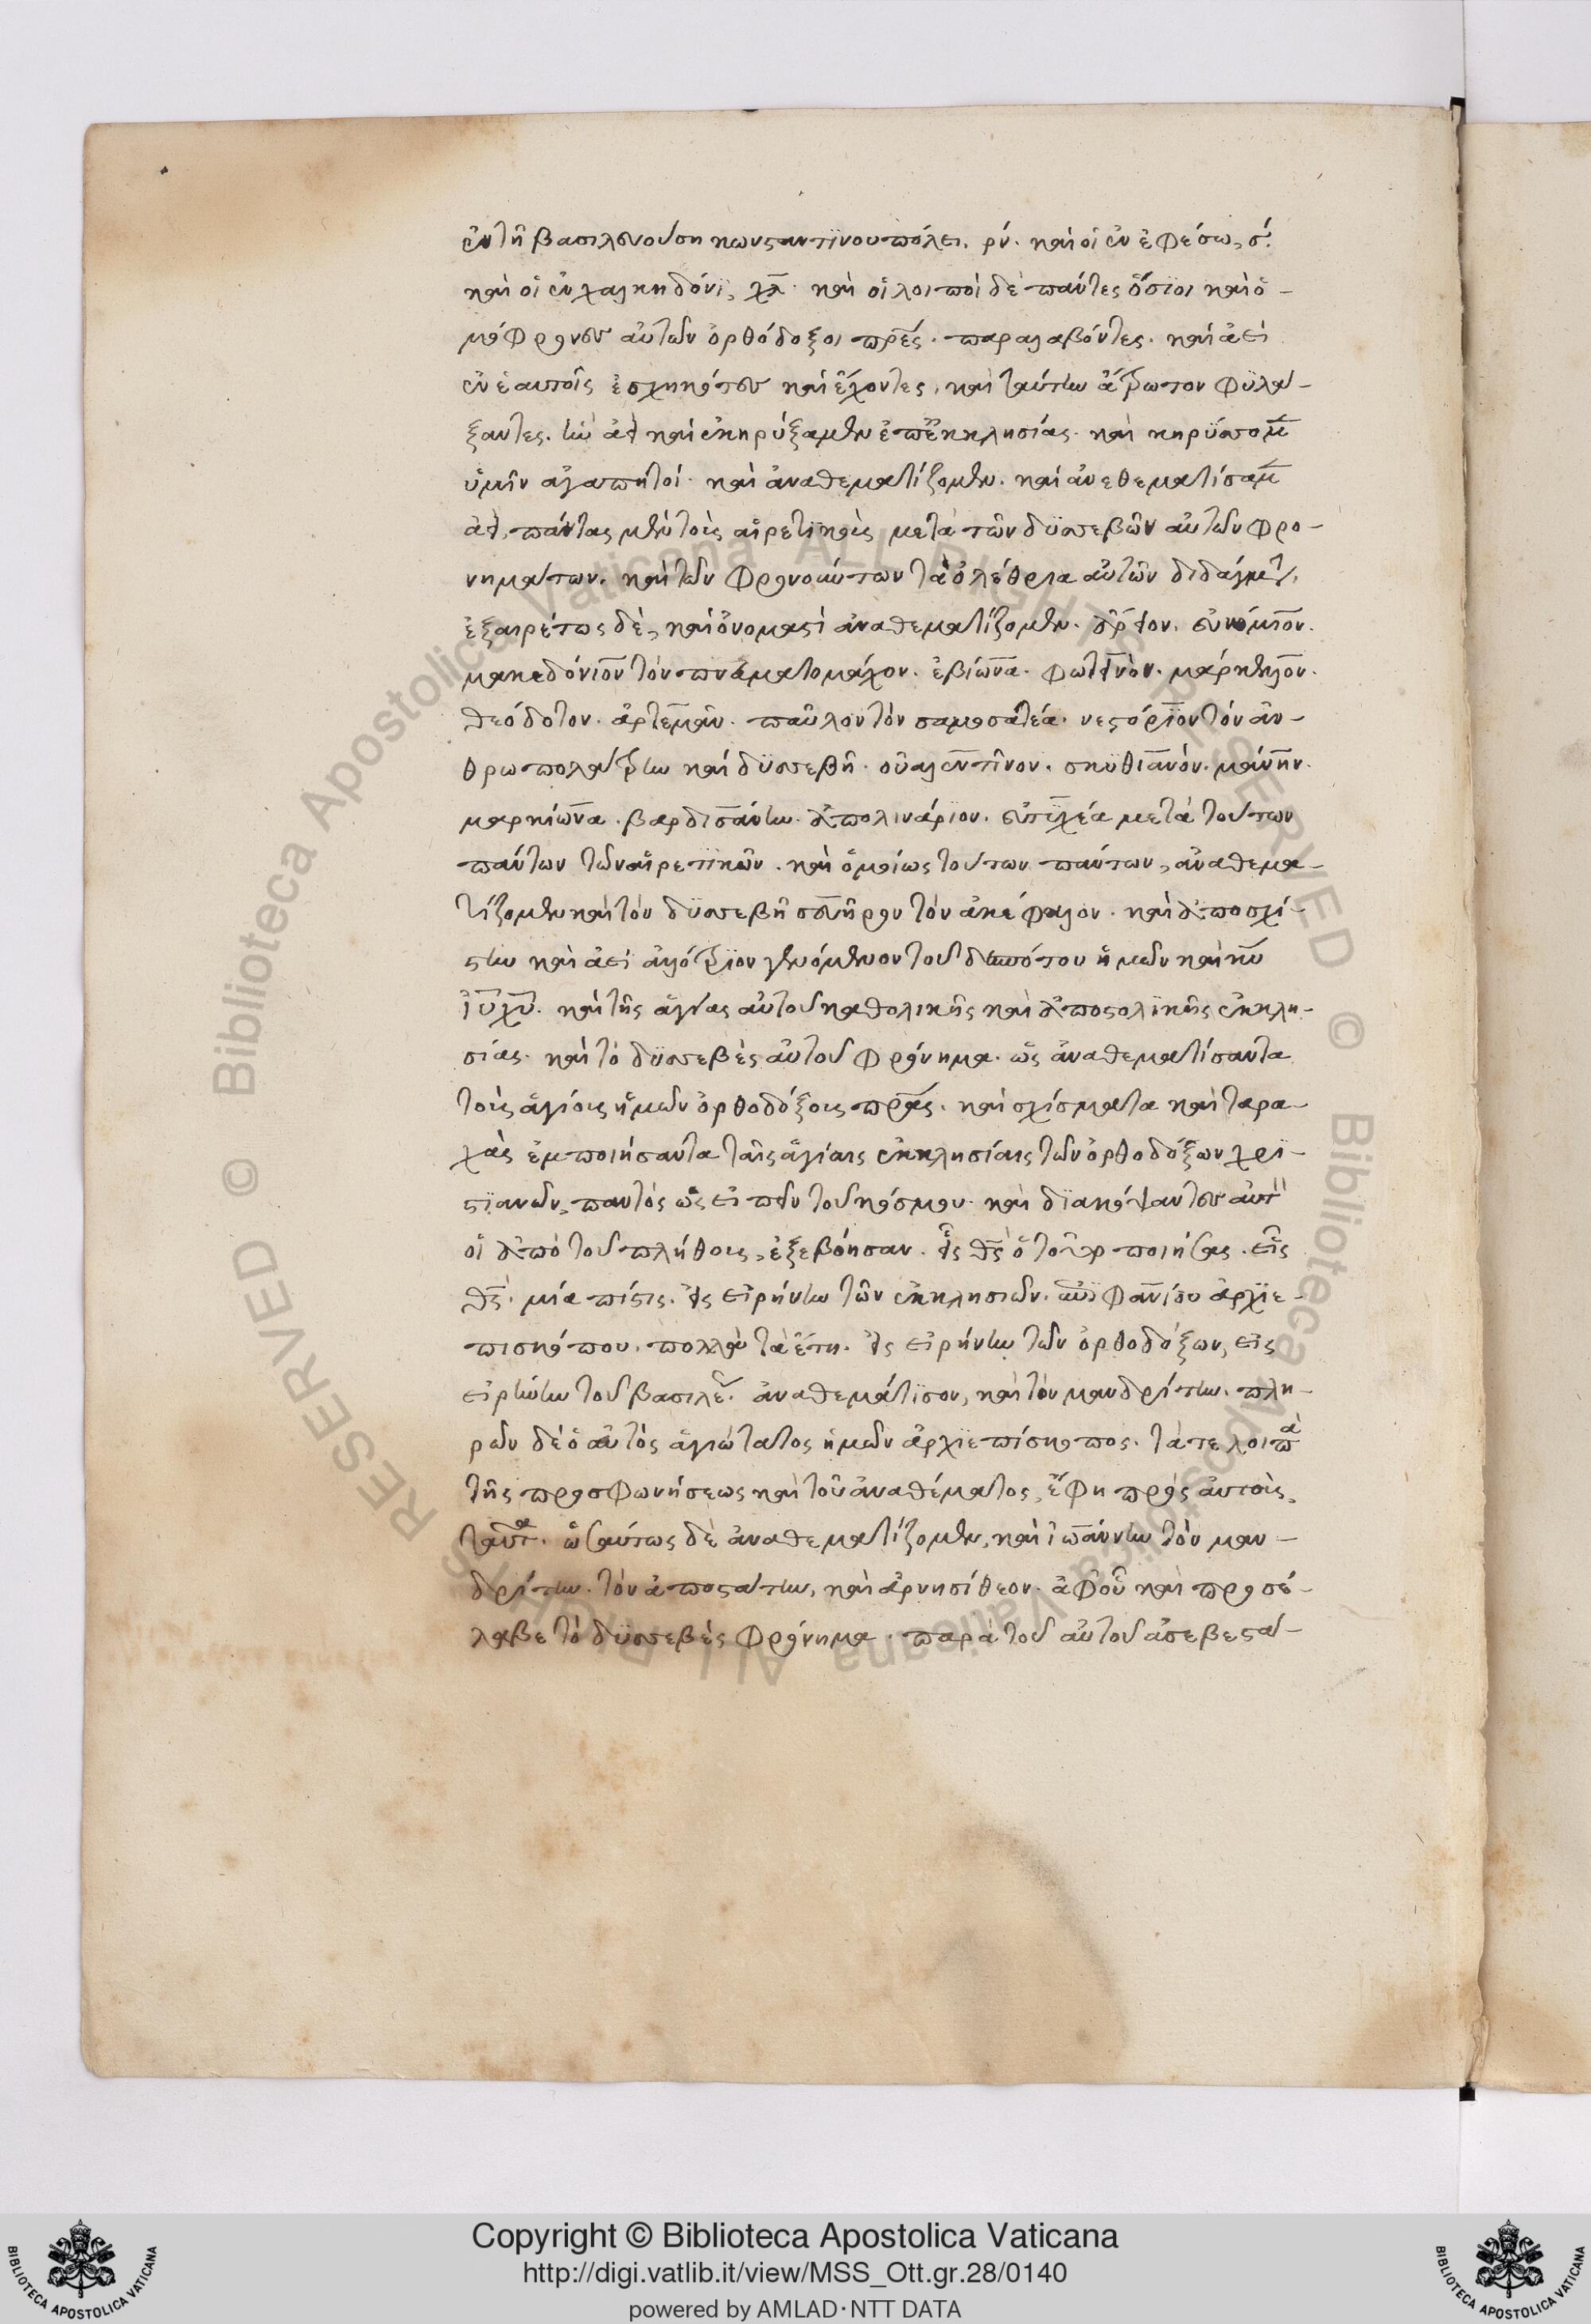 ἐν τῆ βασιλευούση κωνσταντϊνουπόλει. ρν́. καὶ οἱ ἐν ἐφέσω, σ́.
καὶ οἱ ἐν χαλκηδόνϊ, χλ. καὶ οἱ λοιποὶ δὲ πάντες ὅσϊοι καὶ ὁ-
μόφρονες αὐτῶν ὀρθόδοξοι πρές. παραλαβόντες. καὶ ἀεὶ
ἐν ἑαυτοῖς ἐσχηκότες καὶ ἔχοντες, καὶ ταύτην ἄτρωτον φϋλά-
ξαντες. ἣν ἀεὶ καὶ ἐκηρύξαμεν ἐπ ἐκκλησίας. καὶ κηρύσσομ
ὑμῖν ἀγαπητοί. καὶ ἀναθεματίζομεν. καὶ ἀνεθεματίσαμ
ἀεὶ, πάντας μὲν τοὺς αἱρετϊκοὺς μετὰ τῶν δϋσσεβῶν αὐτῶν φρο-
νημάτων. καὶ τῶν φρονούντων τὰ ὀλέθρια αὐτῶν διδάγματ,
ἐξαιρέτως δὲ, καὶ ὀνομαστὶ ἀναθεματίζομεν. ἄρειον. εὐνόμιον.
μακεδόνιον τὸν πνευματομάχον. ἐβίωνα. φωτεινὸν. μάρκελλον.
θεόδοτον. ἀρτεμᾶν. παῦλον τὸν σαμοσατέα. νεστόρϊον τὸν ἀν-
θρωπολάτρην καὶ δϋσσεβῆ. οὐαλεντῖνον. σκϋθιανόν. μάνην.
μαρκίωνα. βαρδισάνην. ἀπολινάριον. εὐτϋχέα μετὰ τούτων
πάντων τῶν αἱρετϊκῶν. καὶ ὁμοίως τούτων πάντων, ἀναθεμα-
τίζομεν καὶ τὸν δϋσσεβῆ σευῆρον τὸν ἀκέφαλον. καὶ ἀποσχί-
στην καὶ ἀεὶ ἀλότριον γενόμενον τοῦ δεσπότου ἡμῶν καὶ κυ
ἰυ χυ. καὶ τῆς ἁγίας αὐτοῦ καθολικῆς καὶ ἀποστολϊκῆς ἐκκλη-
σίας. καὶ τὸ δϋσσεβὲς αὐτοῦ φρόνημα. ὡς ἀναθεματίσαντα
τοὺς ἁγίους ἡμῶν ὀρθοδόξους πρας. καὶ σχίσματα καὶ ταρα-
χὰς ἐμποιήσαντα ταῖς ἁγίαις ἐκκλησίαις τῶν ὀρθοδόξων χρϊ-
στϊανῶν, παντὸς ὡς εἰπεῖν τοῦ κόσμου. καὶ δϊακόψαντες αὐτ
οἱ ἀπὸ τοῦ πλήθους, ἐξεβόησαν. εἷς θς ὁ τοῦτο ποιήσας. εἷς
θς. μία πίστις. εἰς εἰρήνην τῶν ἐκκλησιῶν. ἐπϊφανίου ἀρχϊε-
πισκόπου. πολλὰ τὰ ἔτη. εἰς εἰρήνην τῶν ὀρθοδόξων, εἰς
εἰρήνην τοῦ βασιλέ. ἀναθεμάτϊσον, καὶ τὸν μανδρίτην. πλη-
ρῶν δὲ ὁ αὐτὸς ἁγιώτατος ἡμῶν ἀρχϊεπίσκοπος. τά τε λοιπὰ
τῆς προσφωνήσεως καὶ τοῦ ἀναθέματος, ἔφη πρὸς αὐτοὺς,
ταῦτα. ὡσαύτως δὲ ἀναθεματίζομεν, καὶ ἰωάννην τὸν μαν-
δρίτην. τὸν ἀποστάτην, καὶ ἀρνησίθεον. ἀφοῦ καὶ προσέ-
λαβε τὸ δϋσσεβὲς φρόνημα. παρὰ τοῦ αὐτοῦ ἀσεβεστά-
© Biblioteca Apostolica Vaticana ALL RIGHTS RESERVED
© Biblioteca Apostolica Vaticana ALL RIGHTS RESERVED
Copyright © Biblioteca Apostolica Vaticana
http://digi.vatlib.it/view/MSS_Ott.gr.28/0140
powered by AMLAD·NTT DATA
BIBLIOTECA APOSTOLICA VATICANA
BIBLIOTECA APOSTOLICA VATICANA